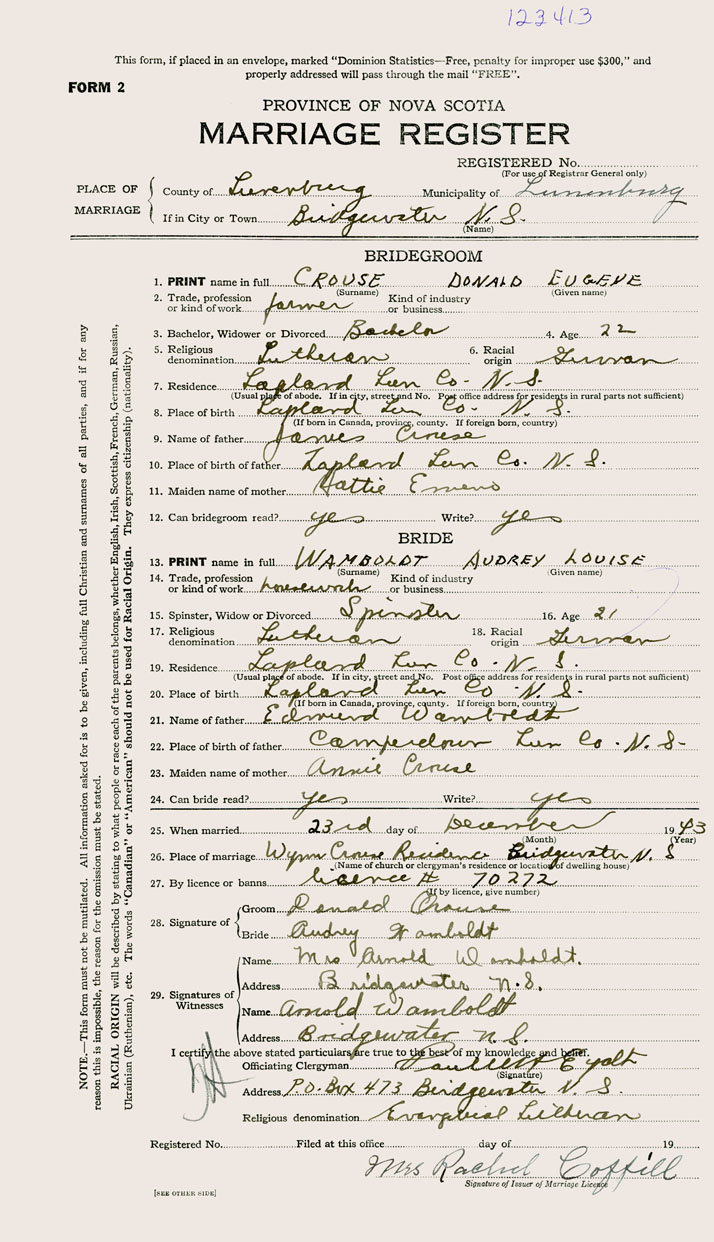 123413
This form, if placed in an envelope, marked "Dominion Statistics—Free, penalty for improper use $300," and
properly addressed will pass through the mail "FREE".
FORM 2
PROVINCE OF NOVA SCOTIA
MARRIAGE REGISTER
REGISTERED No.
(For use of Registrar General only)
PLACE OF MARRIAGE
County of Lunenburg Municipality of Lunenburg
If in City or Town Bridgewater N. S.
(Name)
BRIDEGROOM
1. PRINT name in full CROUSE DONALD EUGENE
(Surname) (Given name)
2. Trade, profession or kind of work farmer Kind of industry or business
3. Bachelor, Widower or Divorced Bachelor 4. Age 22
5. Religious denomination Lutheran 6. Racial origin German
7. Residence Lapland Lun Co. N. S.
(Usual place of abode. If in city, street and No. Post office address for residents in rural parts not sufficient)
8. Place of birth Lapland Lun Co. N. S.
(If born in Canada, province, county. If foreign born, country)
9. Name of father James Crouse
10. Place of birth of father Lapland Lun Co. N. S.
11. Maiden name of mother Hattie
12. Can bridegroom read? yes Write? yes
BRIDE
13. PRINT name in full WAMBOLDT AUDREY LOUISE
(Surname) (Given name)
14. Trade, profession or kind of work housework Kind of industry or business
15. Spinster, Widow or Divorced Spinster 16. Age 21
17. Religious denomination Lutheran 18. Racial origin German
19. Residence Lapland Lun Co. N. S.
(Usual place of abode. If in city, street and No. Post office address for residents in rural parts not sufficient)
20. Place of birth Lapland Lun Co. N. S.
(If born in Canada, province, county. If foreign born, country)
21. Name of father Edmund Wamboldt
22. Place of birth of father Camperdown Lun Co. N. S.
23. Maiden name of mother Annie Crouse
24. Can bride read? yes Write? yes
25. When married 23rd day of December 1943
(Month) (Year)
26. Place of marriage Wynn Crouse Residence Bridgewater N. S
(Name of church or clergyman's residence or location of dwelling house)
27. By licence or banns licence # 70272
(If by licence, give number)
28. Signature of
Groom Donald Crouse
Bride Audrey Wamboldt
29. Signatures of Witnesses
Name Mrs Arnold Wamboldt.
Address Bridgewater N.S.
Name Arnold Wamboldt
Address Bridgewater N.S.
I certify the above stated particulars are true to the best of my knowledge and belief.
Officiating Clergyman
(Signature)
Address P.O. Box 473 Bridgewater N. S.
Religious denomination Evangelical Lutheran
Registered No. Filed at this office day of 19
Mrs Rachel Coffill
Signature of Issuer of Marriage Licence
[SEE OTHER SIDE]
NOTE.—This form must not be mutilated. All information asked for is to be given, including full Christian and surnames of all parties, and if for any
reason this is impossible, the reason for the omission must be stated.
RACIAL ORIGIN will be described by stating to what people or race each of the parents belongs, whether English, Irish, Scottish, French, German, Russian,
Ukrainian (Ruthenian), etc. The words "Canadian" or "American" should not be used for Racial Origin. They express citizenship (nationality).